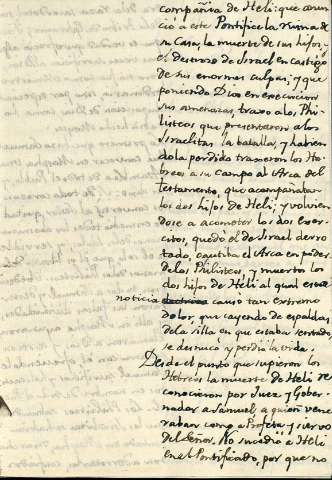 compañia de Heli: que anun
ció a este Pontifice la ruina de
su Casa, la muerte de sus hijos, y
el destrozo de Israel en castigo
de sus enormes culpas; y que
poniendo Dios en execucion
sus amenazas, traxo a los Phi
listeos que presentaron a los
Israelitas la batalla, y habien
dola perdido traxeron los He
breos a su campo al Arca del
testamento, que acompañaban
los dos hijos de Heli; y volvien
dose a acometer los dos exer
citos, quedó el de Israel derro
tado, cautiba el Arca en poder
de los Philisteos, y muertos los
dos hijos de Heli al qual esta
noticia causo tan extremo
dolor, que cayendo de espaldas
de la silla en que estaba sentado,
se desnucó y perdio la vida.
Desde el punto que supieron los
Hebreos la muerte de Heli re
conocieron por Juez y Gober
nador a Samuel, a quien vene
raban como a Profeta y siervo
del Señor. No sucedió a Heli
en el Pontificado, por que no